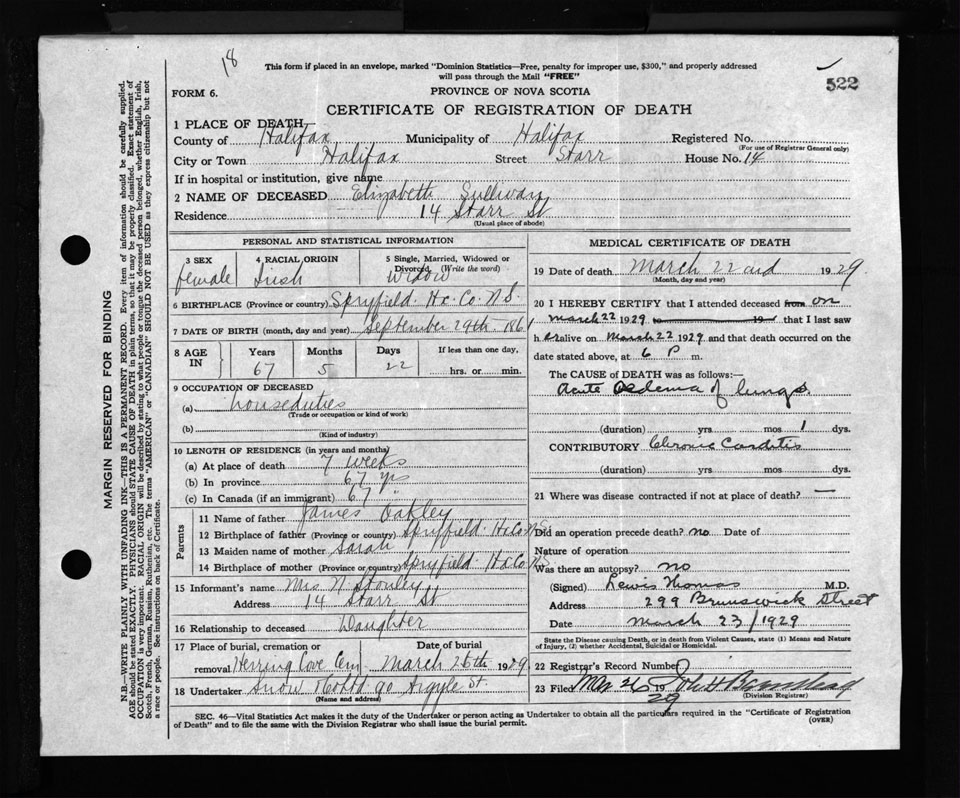 18
This form if placed in an envelope, marked "Dominion Statistics—Free, penalty for improper use, $300," and properly addressed
will pass through the Mail "FREE"
522
FORM 6.
PROVINCE OF NOVA SCOTIA
CERTIFICATE OF REGISTRATION OF DEATH
1 PLACE OF DEATH
County of Halifax Municipality of Halifax Registered No.
(For use of Registrar General only)
City or Town Halifax Street Starr House No. 14
If in hospital or institution, give name
2 NAME OF DECEASED Elizabeth Sullivan
Residence 14 Starr St
(Usual place of abode)
PERSONAL AND STATISTICAL INFORMATION
3 SEX
female
4 RACIAL ORIGIN
Irish
5 Single, Married, Widowed or
Divorced (Write the word)
Widow
6 BIRTHPLACE (Province or country) Spryfield. Hx. Co. N.S.
7 DATE OF BIRTH (month, day and year) September 29th. 1861
8 AGE IN
Years Months Days If less than one day,
67 5 22 hrs. or min.
9 OCCUPATION OF DECEASED
(a) houseduties
(Trade or occupation or kind of work)
(b)
(Kind of industry)
10 LENGTH OF RESIDENCE (in years and months)
(a) At place of death 7 weeks
(b) In province 67 yrs
(c) In Canada (if an immigrant) 67 "
Parents
11 Name of father James Oakley
12 Birthplace of father (Province or country) Spryfield. Hx Co. N.S.
13 Maiden name of mother Sarah
14 Birthplace of mother (Province or country) Spryfield. Hx Co. N.S.
15 Informant's name Mrs N
Address 14 Starr St
16 Relationship to deceased Daughter
17 Place of burial, cremation or Date of burial
removal Herring Cove Cem March 25th 1929
18 Undertaker Snow & Co Ltd 90 Argyle St.
(Name and address)
MEDICAL CERTIFICATE OF DEATH
19 Date of death March 22nd 1929
(Month, day and year)
20 I HEREBY CERTIFY that I attended deceased from on
March 22 1929 to 19 that I last saw
her alive on March 22 1929 and that death occurred on the
date stated above, at 6 P m.
The CAUSE OF DEATH was as follows:—
Acute Oedema of lungs.
(duration) yrs mos 1 dys.
CONTRIBUTORY Chronic Carditis
(duration) yrs mos dys.
21 Where was disease contracted if not at place of death? —
Did an operation precede death? no Date of
Nature of operation
Was there an autopsy? no
(Signed) Lewis Thomas M.D.
Address 299 Brunswick Street
Date March 23/1929
State the Disease causing Death, or in death from Violent Causes, state (1) Means and Nature
of Injury, (2) whether Accidental, Suicidal or Homicidal.
22 Registrar's Record Number
23 Filed Mar 26 1929
(Division Registrar)
SEC. 46—Vital Statistics Act makes it the duty of the Undertaker or person acting as Undertaker to obtain all the particulars required in the "Certificate of Registration
of Death" and to file the same with the Division Registrar who shall issue the burial permit.
(OVER)
MARGIN RESERVED FOR BINDING
N.B.—WRITE PLAINLY WITH UNFADING INK—THIS IS A PERMANENT RECORD. Every item of information should be carefully supplied.
AGE should be stated EXACTLY. PHYSICIANS should STATE CAUSE OF DEATH in plain terms, so that it may be properly classified. Exact statement of
OCCUPATION is very important. RACIAL ORIGIN will be described by stating to what people or tongue the deceased person belonged, whether English, Irish,
Scotch, French, German, Russian, Ruthenian, etc. The terms "AMERICAN" or "CANADIAN" SHOULD NOT BE USED as they express citizenship but not
a race or people. See instructions on back of Certificate.